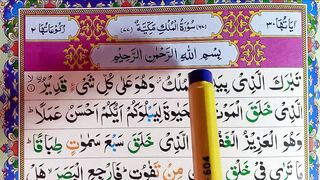 اٰیَاتُهَا ٣٠ (٦٧) سُوْرَةُ الْمُلْكِ مَكِّیَّةٌ (٧٧) رُكُوْعَاتُهَا ٢
بِسْمِ اللّٰهِ الرَّحْمٰنِ الرَّحِیْمِ
تَبٰرَكَ الَّذِیْ بِیَدِهِ مُلْكُ وَهُوَ عَلٰی كُلِّ شَیْءٍ قَدِیْرُ
الَّذِیْ خَلَقَ الْمَوْتَ حَیٰوةَ لِیَبْلُوَكُمْ اَیُّكُمْ اَحْسَنُ عَمَلًا
وَهُوَ الْعَزِیْزُ الْغَفُ الَّذِیْ خَلَقَ سَبْعَ سَمٰوٰتٍ طِبَاقًا
مَا تَرٰی فِیْ خَلْ مِنْ تَفٰوُتٍ فَارْجِعِ الْبَصَرَ هَلْ
604